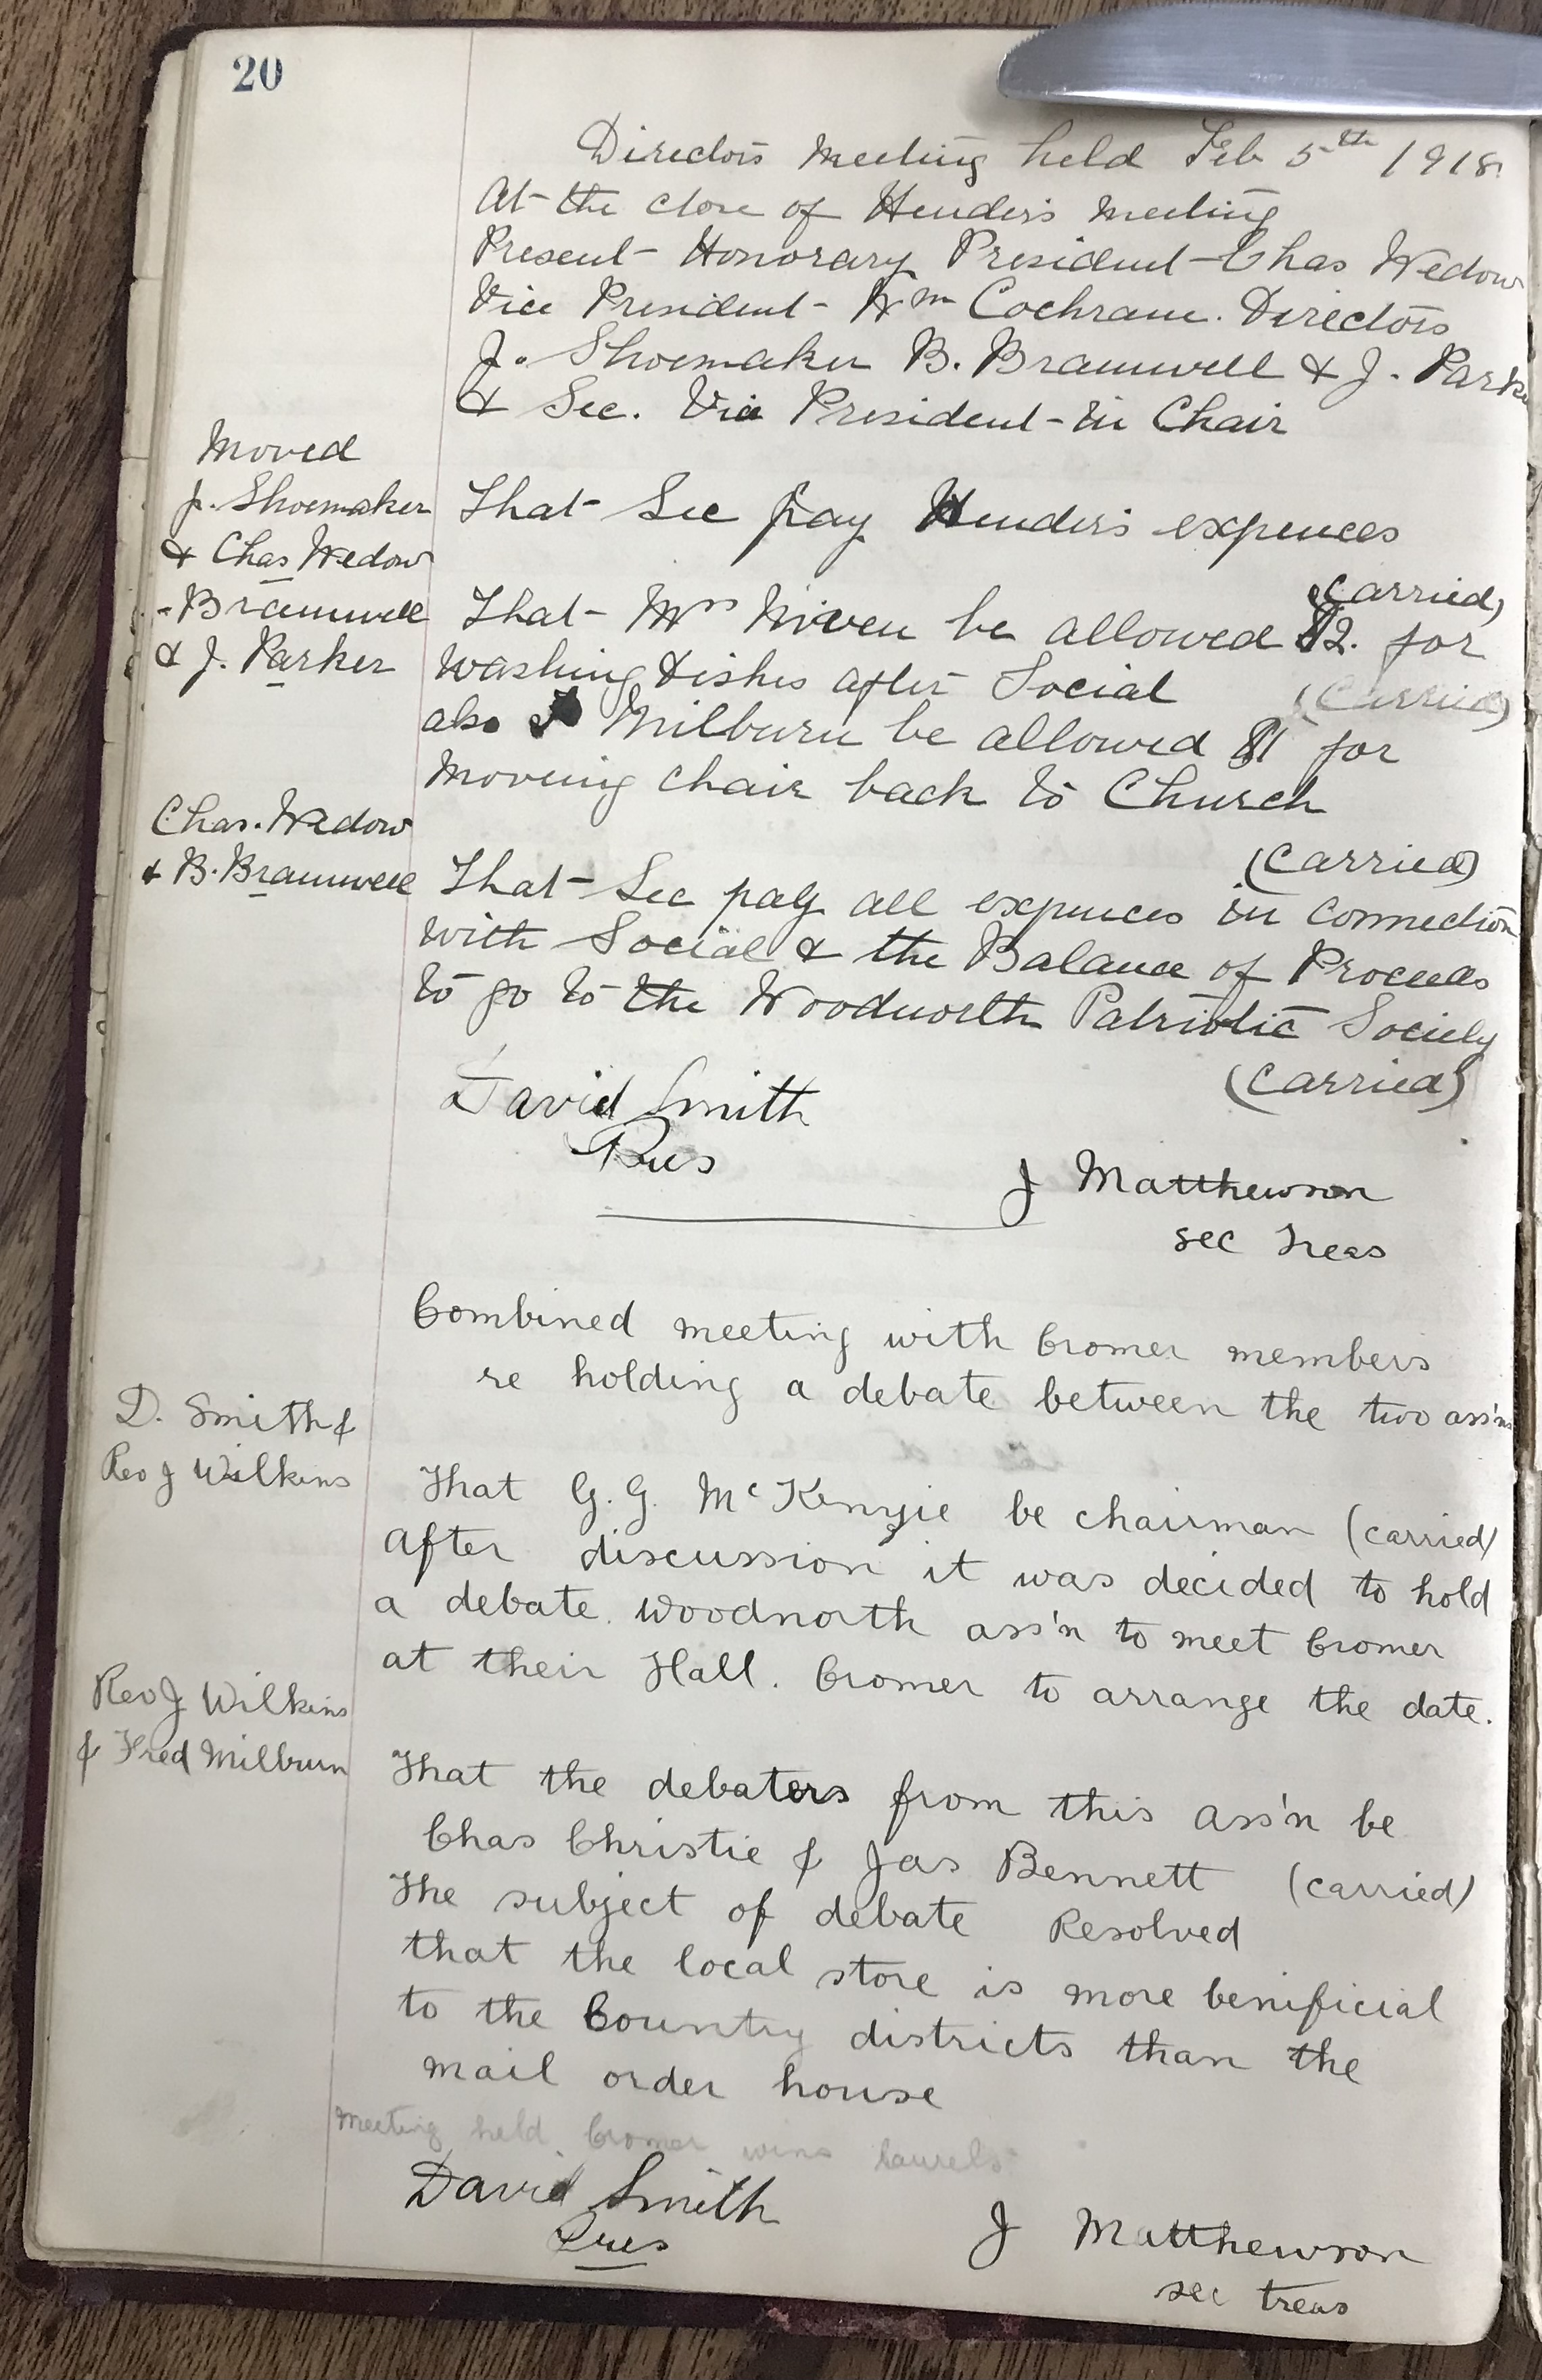 20
Directors Meeting held Feb 5th 1918
At the close of Henders Meeting
Present - Honorary President - Chas Wedow
Vice President - Wm Cochrane. Directors
J. Shoemaker B. Bramwell & J. Parker
& Sec. Vice President - in Chair
Moved
J. Shoemaker
& Chas Wedow
That Sec pay Henders expences
(Carried)
- Bramwell
& J. Parker
That Mrs Niven be allowed $2. for
washing dishes after Social (Carried)
also Milburn be allowed $1 for
moving chair back to Church
(Carried)
Chas. Wedow
& B. Bramwell
That Sec pay all expences in Connection
with Social & the Balance of Proceeds
to go to the Woodnorth Patriotic Society
(Carried)
David Smith
Pres
J Matthewson
sec Treas
Combined meeting with Cromer members
re holding a debate between the two ass'ns
D. Smith &
Rev J Wilkins
That G. G. McKenzie be chairman (carried)
After discussion it was decided to hold
a debate. Woodnorth ass'n to meet Cromer
at their Hall. Cromer to arrange the date.
Rev J Wilkins
& Fred Milburn
That the debaters from this Ass'n be
Chas Christie & Jas Bennett (carried)
The subject of debate Resolved
that the local store is more benificial
to the Country districts than the
mail order house
Meeting held Cromer wins laurels
David Smith
Pres
J Matthewson
sec treas